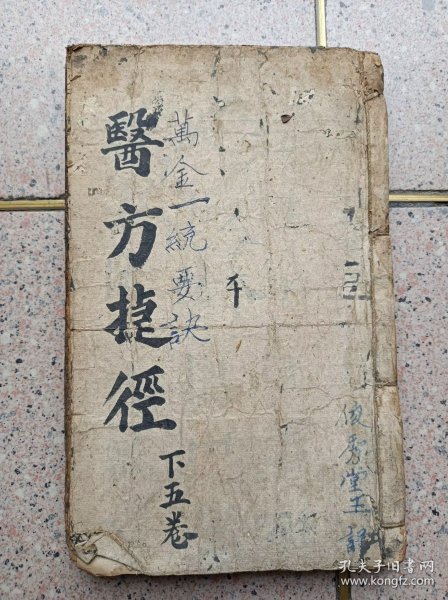 醫方捷徑
下五卷
萬金一統要訣
秀堂
孔夫子旧书网
www.kongfz.com